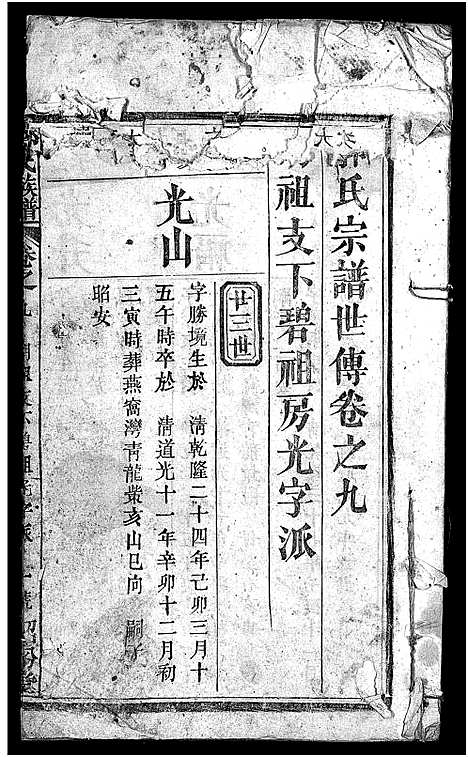 氏宗譜世傳卷之九
祖支下碧祖房光字派
廿三世
光山
字勝境生於 清乾隆二十四年己卯三月十
五午時卒於 清道光十一年辛卯十二月初
三寅時葬燕窩灣青龍嘴亥山巳向 嗣子
昭安
氏族譜 卷之九